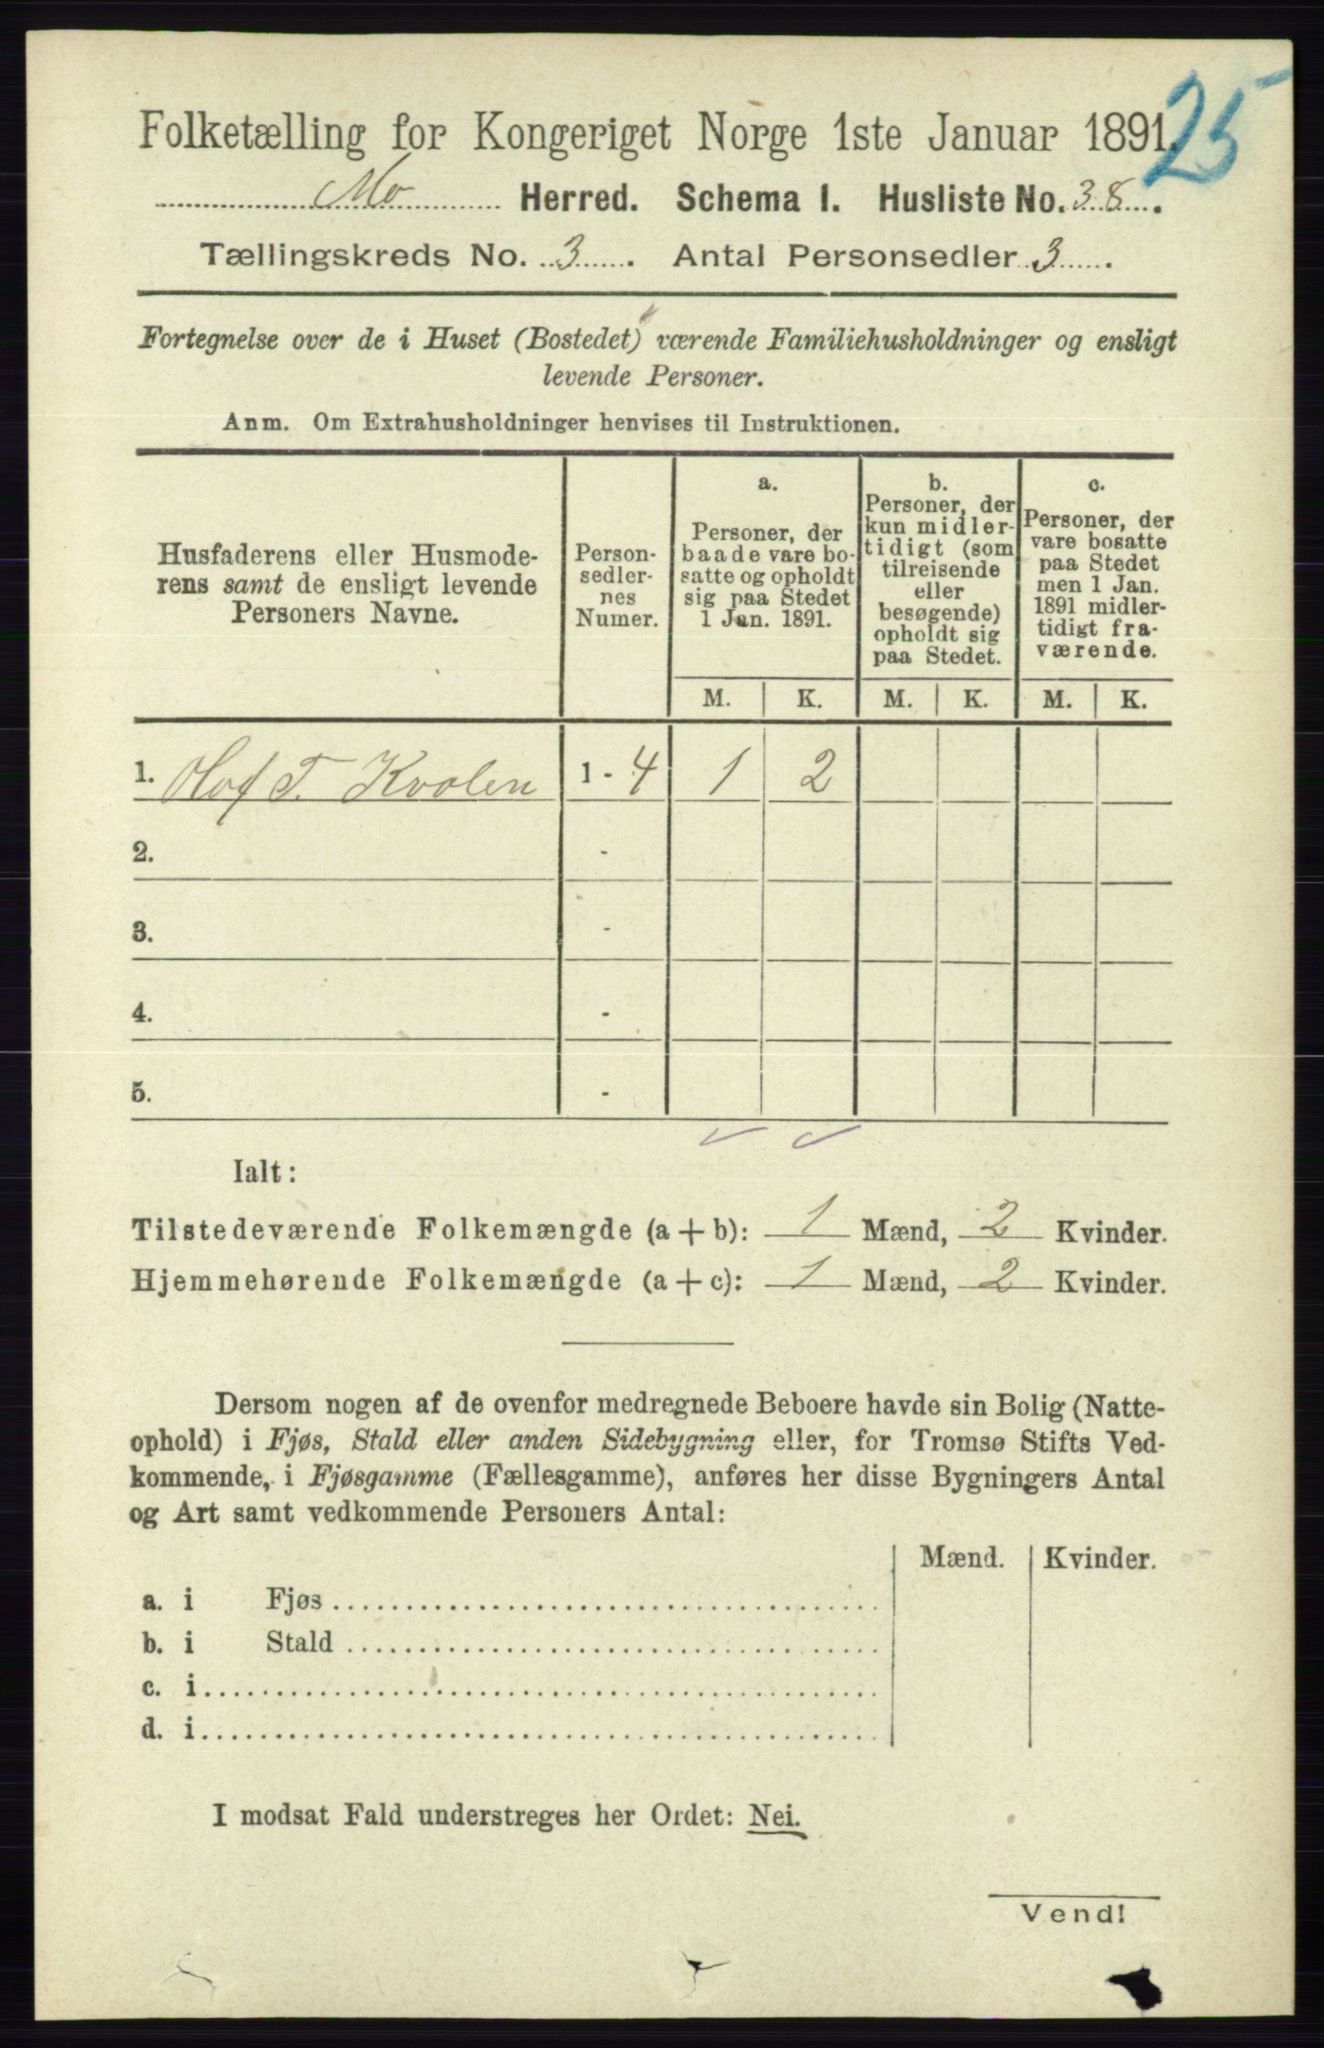 25
Folketælling for Kongeriget Norge 1ste Januar 1891.
Mo Herred. Schema I. Husliste No. 38.
Tællingskreds No. 3. Antal Personsedler 3.
Fortegnelse over de i Huset (Bostedet) værende Familiehusholdninger og ensligt
levende Personer.
Anm. Om Extrahusholdninger henvises til Instruktionen.
Husfaderens eller Husmode-
rens samt de ensligt levende
Personers Navne.
Person-
sedler-
nes
Numer.
a.
Personer, der
baade vare bo-
satte og opholdt
sig paa Stedet
1 Jan. 1891.
b.
Personer, der
kun midler-
tidigt (som
tilreisende
eller
besøgende)
opholdt sig
paa Stedet.
c.
Personer, der
vare bosatte
paa Stedet
men 1 Jan.
1891 midler-
tidigt fra-
værende.
M. K. M. K. M. K.
1. Olof T. Kvolen 1 - 4 1 2
2. -
3. -
4. -
5. -
Ialt:
Tilstedeværende Folkemængde (a + b): 1 Mænd, 2 Kvinder.
Hjemmehørende Folkemængde (a + c): 1 Mænd, 2 Kvinder.
Dersom nogen af de ovenfor medregnede Beboere havde sin Bolig (Natte-
ophold) i Fjøs, Stald eller anden Sidebygning eller, for Tromsø Stifts Ved-
kommende, i Fjøsgamme (Fællesgamme), anføres her disse Bygningers Antal
og Art samt vedkommende Personers Antal:
Mænd. Kvinder.
a. i Fjøs
b. i Stald
c. i
d. i
I modsat Fald understreges her Ordet: Nei.
Vend!